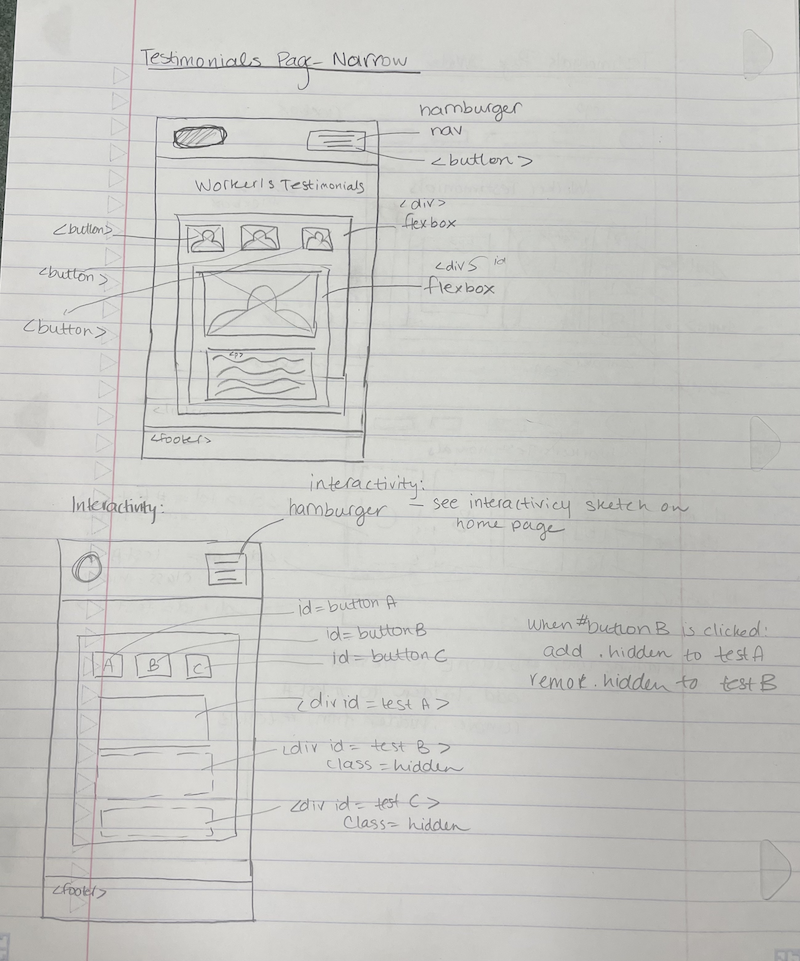 Testimonials Page - Narrow
hamburger
nav
<button>
Worker's Testimonials
<div>
flexbox
<button>
<button>
<button>
<div> id
flexbox
<p>
<footer>
Interactivity:
interactivity:
hamburger — see interactivicy sketch on
home page
id=button A
id=button B
id=button C
A B C
<div id = test A>
<div id = test B>
class = hidden
<div id = test C>
Class = hidden
<footer>
when #button B is clicked:
add .hidden to test A
remov .hidden to test B